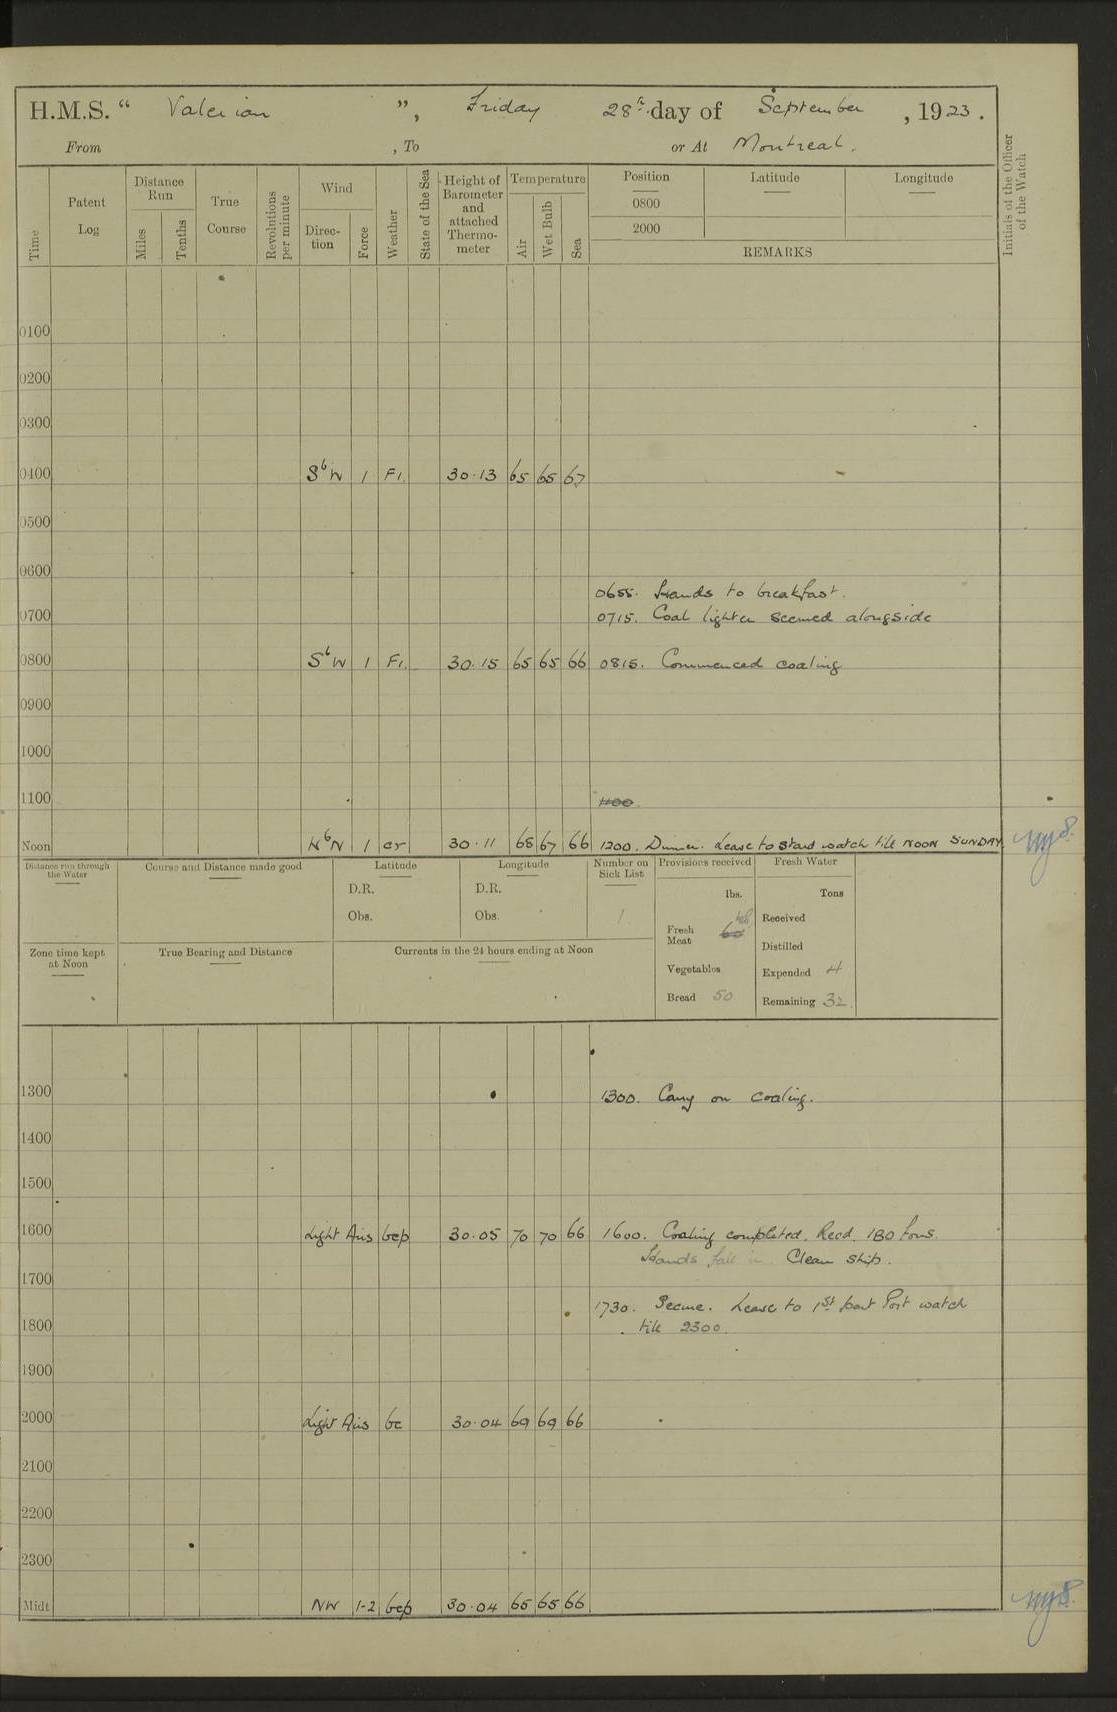 H.M.S. “ Valerian ”, Friday 28th day of September, 1923.
From , To or At Montreal.
Time
Patent Log
Distance Run
Miles
Tenths
True Course
Revolutions per minute
Wind
Direction
Force
Weather
State of the Sea
Height of Barometer and attached Thermometer
Temperature
Air
Wet Bulb
Sea
Position
0800
2000
Latitude
Longitude
REMARKS
Initials of the Officer of the Watch
0100
0200
0300
0400 SbW 1 Fr. 30.13 65 65 67
0500
0600
0655. Hands to breakfast.
0700 0715. Coal lighter secured alongside
0800 SbW 1 Fr. 30.15 65 65 66 0815. Commenced coaling
0900
1000
1100 1100
Noon NbN 1 cr 30.11 68 67 66 1200. Dinner. Leave to Stard watch till NOON SUNDAY
Distance run through the Water
Course and Distance made good
Latitude
D.R.
Obs.
Longitude
D.R.
Obs.
Number on Sick List
1
Provisions received
lbs.
Fresh Meat 60
Vegetables
Bread 50
Fresh Water
Tons
Received
Distilled
Expended 4
Remaining 32
Zone time kept at Noon
True Bearing and Distance
Currents in the 24 hours ending at Noon
1300 1300. Carry on coaling.
1400
1500
1600 Light Airs bcp 30.05 70 70 66 1600. Coaling completed. Recd. 130 tons.
Hands fall in. Clean ship.
1700
1730. Secure. Leave to 1st part Port watch
1800 till 2300.
1900
2000 Light Airs bc 30.04 69 69 66
2100
2200
2300
Midt NW 1-2 bcp 30.04 65 65 66